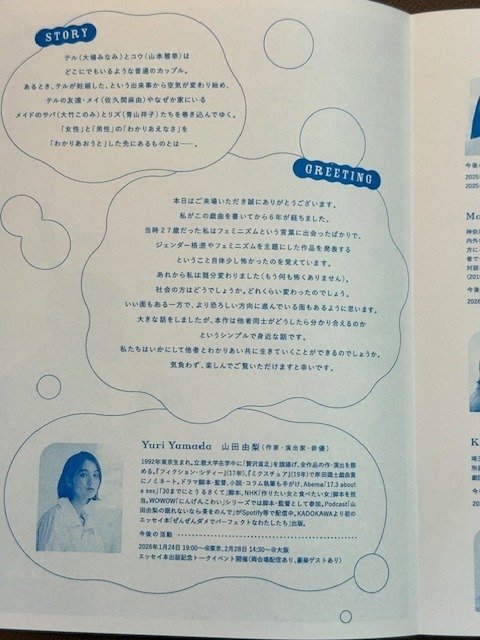 STORY
テル(大場みなみ)とコウ(山本雅幸)は
どこにでもいるような普通のカップル。
あるとき、テルが妊娠した、という出来事から空気が変わり始め、
テルの友達・メイ(佐久間麻由)やなぜか家にいる
メイドのサバ(大竹このみ)とリズ(青山祥子)たちを巻き込んでゆく。
「女性」と「男性」の「わかりあえなさ」を
「わかりあおうと」した先にあるものとは——。
GREETING
本日はご来場いただき誠にありがとうございます。
私がこの戯曲を書いてから6年が経ちました。
当時27歳だった私はフェミニズムという言葉に出会ったばかりで、
ジェンダー格差やフェミニズムを主題にした作品を発表する
ということ自体少し怖かったのを覚えています。
あれから私は随分変わりました(もう何も怖くありません)。
社会の方はどうでしょうか。どれくらい変わったのでしょう。
いい面もある一方で、より恐ろしい方向に進んでいる面もあるように思います。
大きな話をしましたが、本作は他者同士がどうしたら分かり合えるのか
というシンプルで身近な話です。
私たちはいかにして他者とわかりあい共に生きていくことができるのでしょうか。
気負わず、楽しんでご覧いただけますと幸いです。
Yuri Yamada 山田由梨(作家・演出家・俳優)
1992年東京生まれ。立教大学在学中に「贅沢貧乏」を旗揚げ、全作品の作・演出を務
める。『フィクション・シティー』(17年)、『ミクスチュア』(19年)で岸田國士戯曲賞
にノミネート。ドラマ脚本・監督、小説・コラム執筆も手がけ、Abema「17.3 about
a sex」「30までにとうるさくて」脚本、NHK「作りたい女と食べたい女」脚本を担
当。WOWOW「にんげんこわい」シリーズでは脚本・監督として参加。Podcast「山
田由梨の眠れないなら茶をのんで」がSpotify等で配信中。KADOKAWAより初の
エッセイ本『ぜんぜんダメでパーフェクトなわたしたち』出版。
今後の活動
2026年1月24日 19:00〜@東京、2月28日 14:30〜@大阪
エッセイ本出版記念トークイベント開催(両会場配信あり、豪華ゲストあり)
今後
2025
2025
Ma
神奈
内外
方に
者で
対話
(201
今後
2026
K
埼玉
所属
劇団
今後